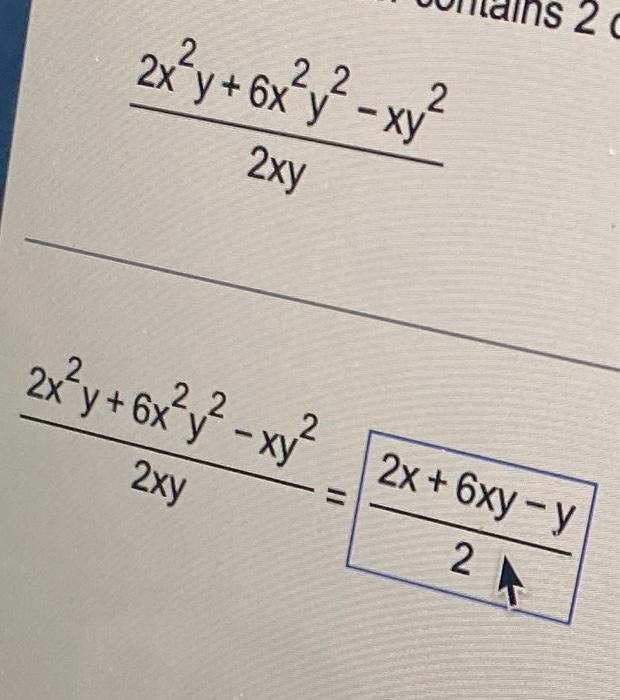 contains 2
2x²y + 6x²y² - xy²
2xy
2x²y + 6x²y² - xy²
2xy
=
2x + 6xy - y
2